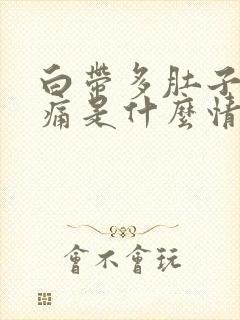 白帶多肚子
痛是什麼情
會不會玩